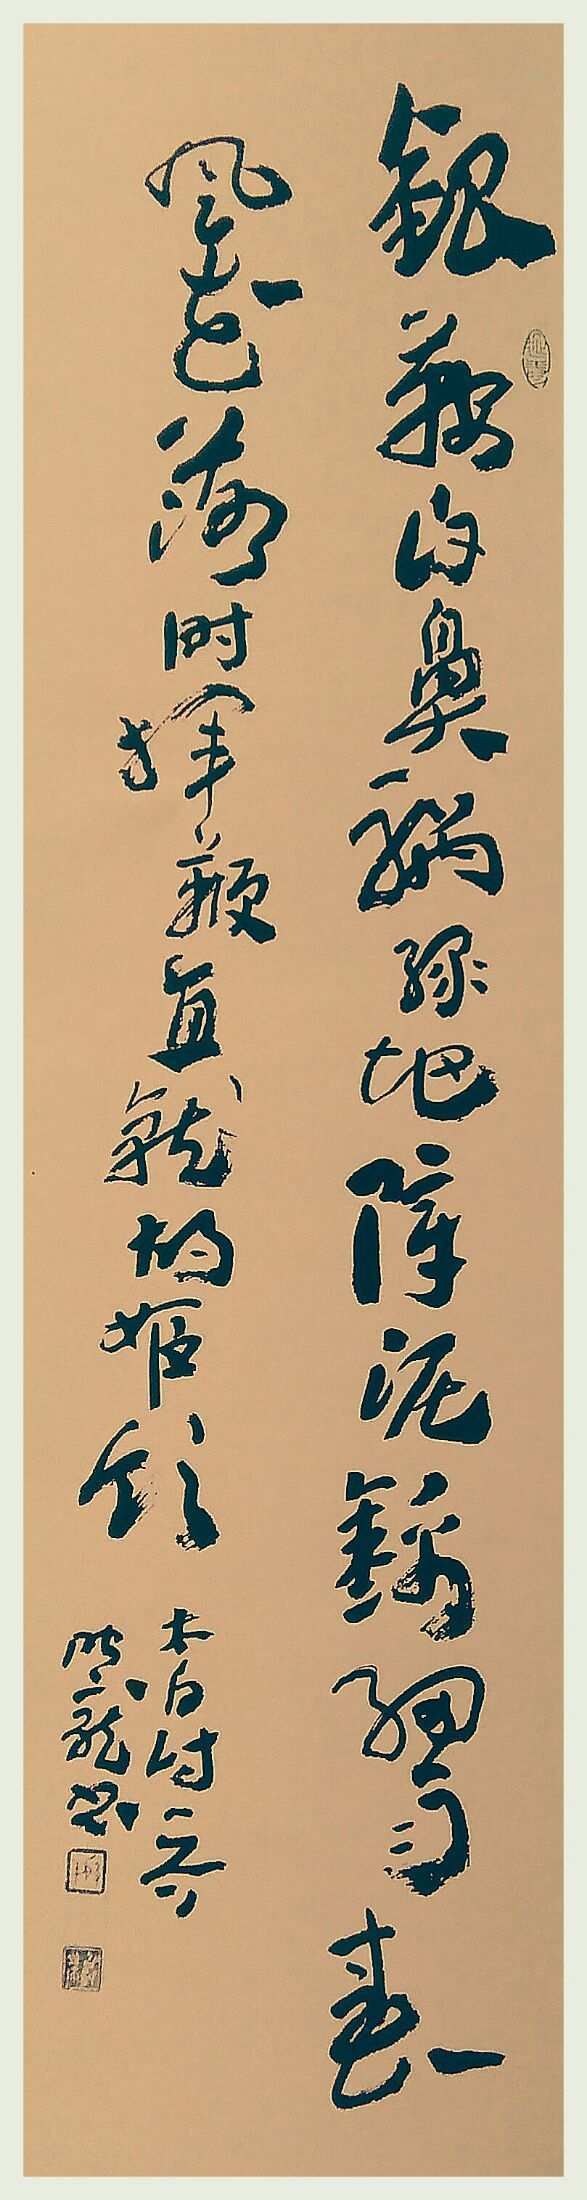 銀鞍白鼻騧綠地障泥錦細雨春
風花落時揮鞭直就胡姬飲
太白詩一首
龍书